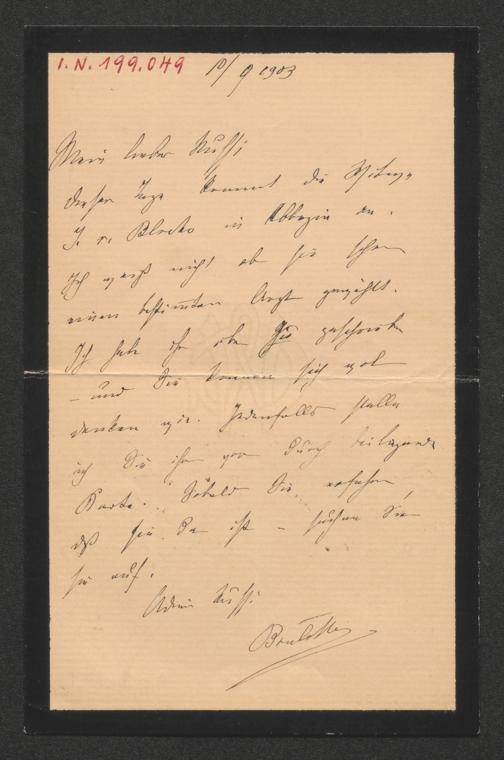 I.N. 199.049
10/9 1903
Mein lieber Nussi
dieser Tage kommt die Witwe
J. v. Bloch's in Abbazia an.
Ich weiß nicht ob sie schon
einen bestimmten Arzt gewählt.
Ich habe ihr über Sie geschrieben
– und Sie können sich wol
denken wie. Jedenfalls stelle
ich Sie ihr vor durch beiliegende
Karte. Sobald Sie erfahren
daß sie da ist – suchen Sie
sie auf.
Adieu Nussi